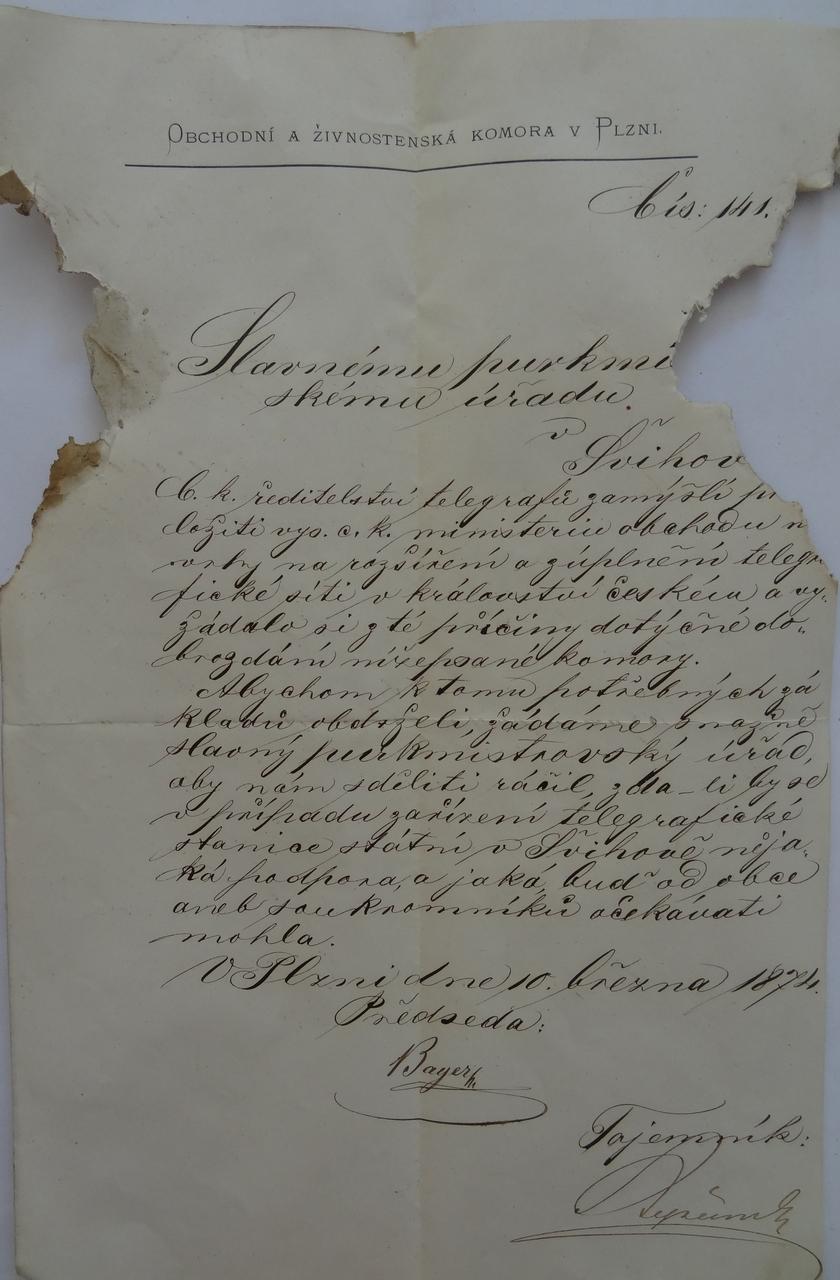 OBCHODNÍ A ŽIVNOSTENSKÁ KOMORA V PLZNI.
Čís: 141.
Slavnému purkmi
skému úřadu
v
Švihov
C. k. ředitelství telegrafů zamýšlí
ložiti vys. c. k. ministeriu obchodu n
vrhy na rozšíření a zúplnění telegra
fické síti v království českém a vy-
žádalo si z té příčiny dotyčné do-
brozdání nížepsané komory.
Abychom k tomu potřebných zá
kladů obdrželi, žádáme snažně
slavný purkmistrovský úřad,
aby nám sděliti ráčil, zda-li by se
v případu zařízení telegrafické
stanice státní v Švihově něja-
ká podpora, a jaká, buď od obce
aneb soukromníků očekávati
mohla.
V Plzni dne 10. března 1874.
Předseda:
Bayer
Tajemník: